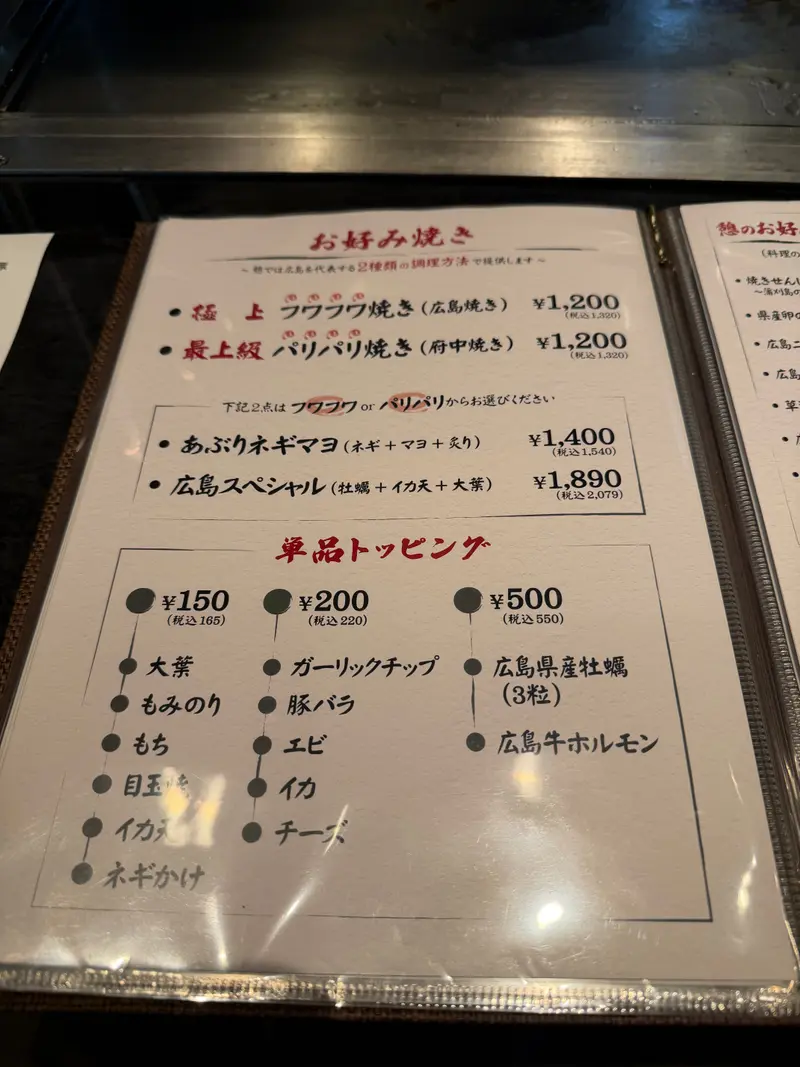 お好み焼き
～憩では広島を代表する2種類の調理方法で提供します～
・極上 フワフワ焼き（広島焼き） ¥1,200
（税込1,320）
・最上級 パリパリ焼き（府中焼き） ¥1,200
（税込1,320）
下記2点は フワフワ or パリパリからお選びください
・あぶりネギマヨ（ネギ＋マヨ＋炙り） ¥1,400
（税込1,540）
・広島スペシャル（牡蠣＋イカ天＋大葉） ¥1,890
（税込2,079）
単品トッピング
¥150
（税込165）
大葉
もみのり
もち
目玉焼
イカ天
ネギかけ
¥200
（税込220）
ガーリックチップ
豚バラ
エビ
イカ
チーズ
¥500
（税込550）
広島県産牡蠣
（3粒）
広島牛ホルモン
憩のお好
（料理の
・焼きせん
・県産卵の
・広島
・広島